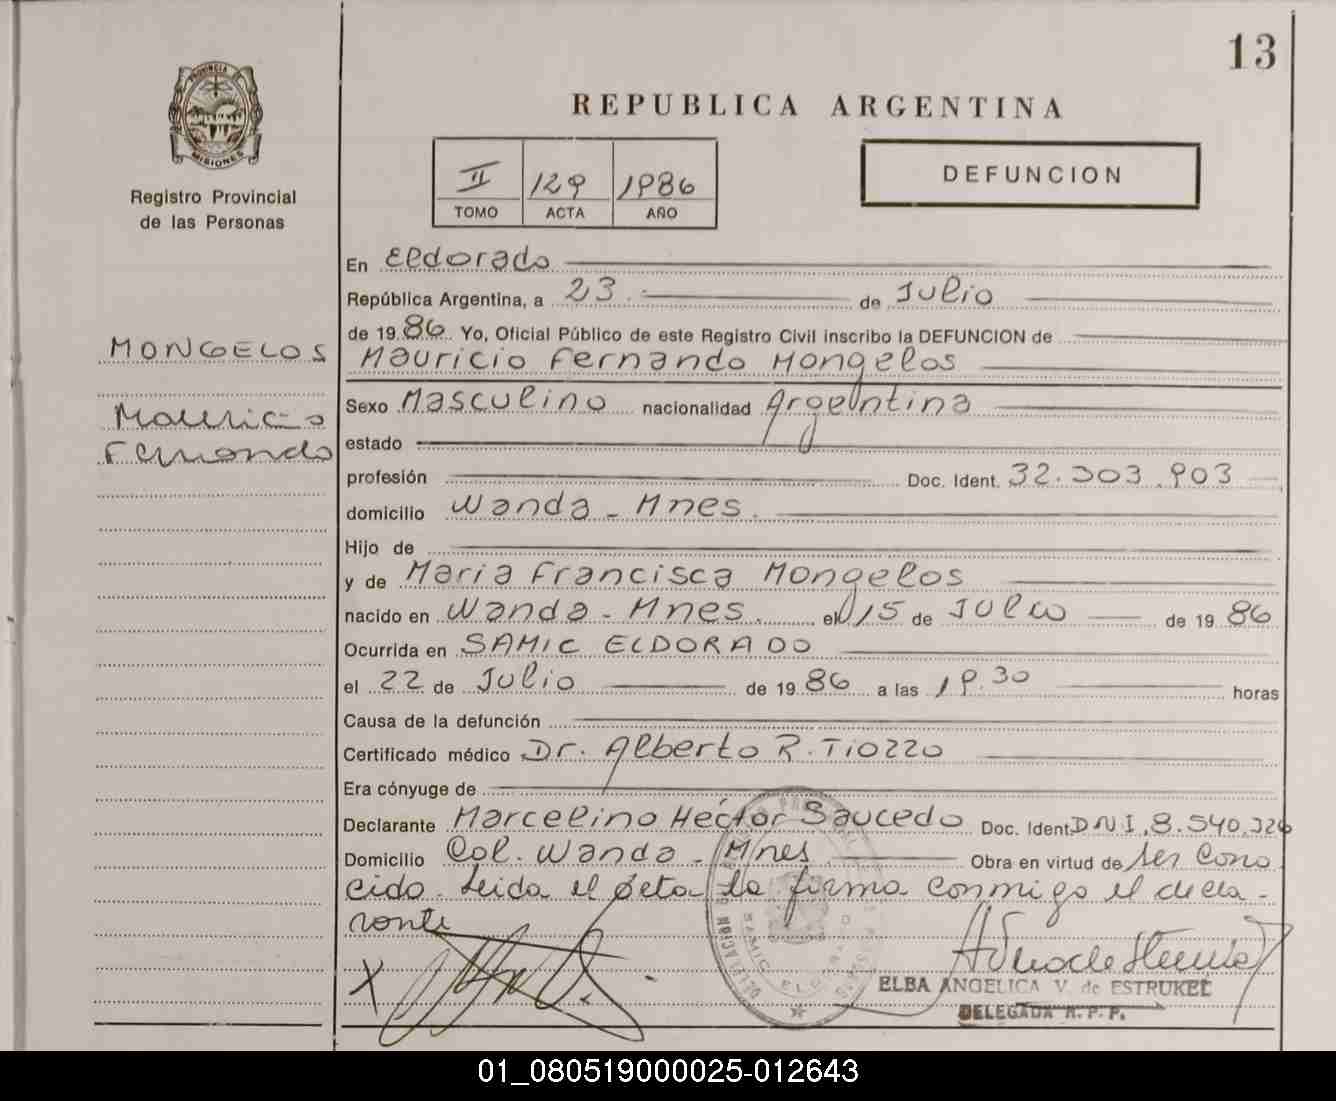 13
PROVINCIA DE
MISIONES
Registro Provincial
de las Personas
REPUBLICA ARGENTINA
II 129 1986
TOMO ACTA AÑO
DEFUNCION
MONGELOS
Mauricio
Fernando
En Eldorado
República Argentina, a 23 de Julio
de 1986 Yo, Oficial Público de este Registro Civil inscribo la DEFUNCION de
Mauricio Fernando Mongelos
Sexo Masculino nacionalidad Argentina
estado
profesión Doc. Ident. 32.303.903
domicilio Wanda - Mnes.
Hijo de
y de Maria Francisca Mongelos
nacido en Wanda - Mnes. el 15 de Julio de 1986
Ocurrida en SAMIC ELDORADO
el 22 de Julio de 1986 a las 19.30 horas
Causa de la defunción
Certificado médico Dr. Alberto R. Tiozzo
Era cónyuge de
Declarante Marcelino Héctor Saucedo Doc. Ident. DNI. 8.540.326
Domicilio Col. Wanda - Mnes Obra en virtud de ser Cono
cido. Leida el acta la firma conmigo el decla-
rante
X
SAMIC ELDORADO
ELBA ANGELICA V. de ESTRUKEL
DELEGADA R. P. P.
01_080519000025-012643